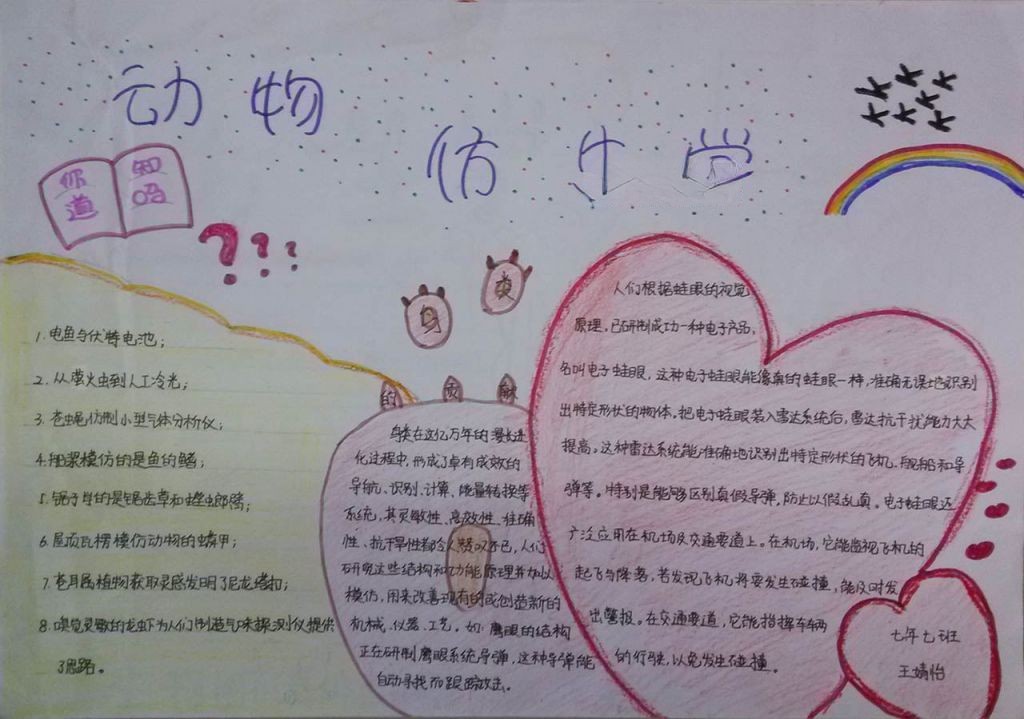 动物
仿生学
你知
道吗
???
1.电鱼与伏特电池；
2.从萤火虫到人工冷光；
3.苍蝇仿制小型气体分析仪；
4.船桨模仿的是鱼的鳍；
5.锯子学的是锯齿草和螳螂臂；
6.屋顶瓦楞模仿动物的鳞甲；
7.苍耳属植物获取灵感发明了尼龙搭扣；
8.嗅觉灵敏的龙虾为人们制造气味探测仪提供
了思路。
鸟类
的贡献
鸟类在这亿万年的漫长进
化过程中，形成了卓有成效的
导航、识别、计算、能量转换等
系统，其灵敏性、高效性、准确
性、抗干旱性都令人赞叹不已，人们
研究这些结构和功能原理并加以
模仿，用来改善现有的或创造新的
机械、仪器、工艺。如：鹰眼的结构
正在研制鹰眼系统导弹，这种导弹能
自动寻找而跟踪攻击。
人们根据蛙眼的视觉
原理，已研制成功一种电子产品，
名叫电子蛙眼，这种电子蛙眼能像真的蛙眼一样，准确无误地识别
出特定形状的物体。把电子蛙眼装入雷达系统后，雷达抗干扰能力大大
提高。这种雷达系统能准确地识别出特定形状的飞机、舰船和导
弹等。特别是能够区别真假导弹，防止以假乱真。电子蛙眼还
广泛应用在机场及交通要道上。在机场，它能监视飞机的
起飞与降落，若发现飞机将要发生碰撞，能及时发
出警报。在交通要道，它能指挥车辆
的行驶，以免发生碰撞。
七年七班
王婧怡